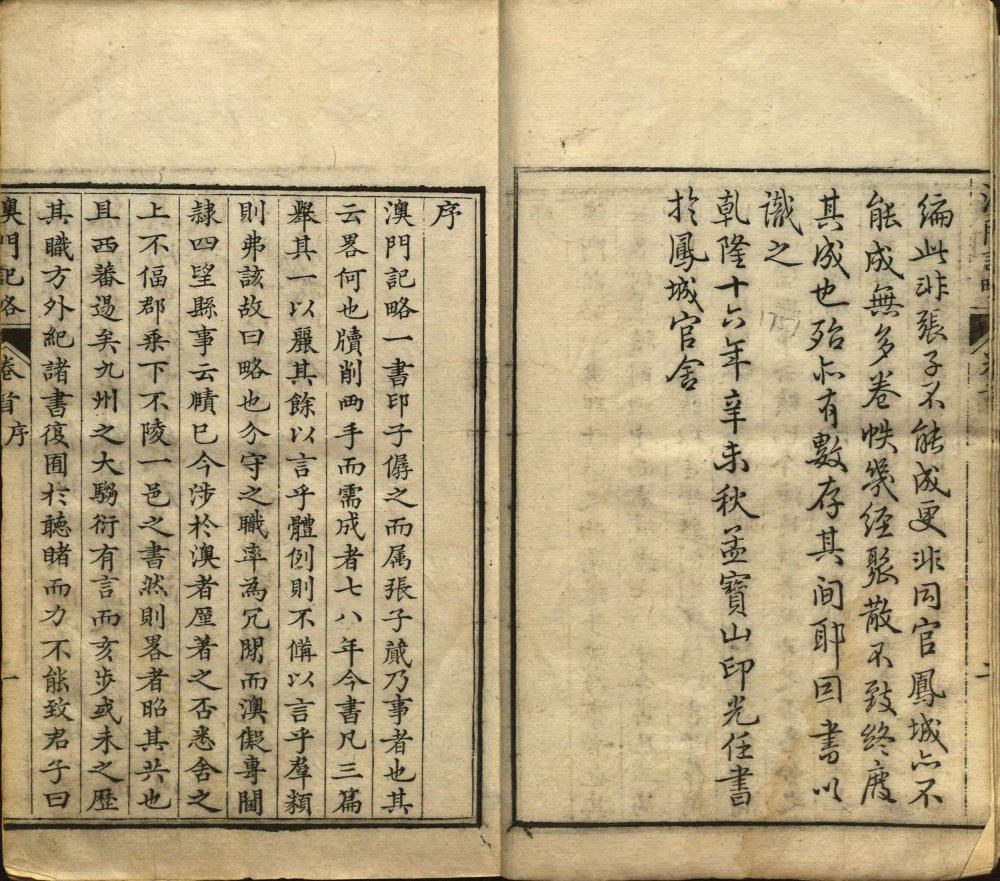 編此非張子不能成更非同官鳳城亦不
能成無多卷帙幾經聚散不致終廢
其成也殆亦有數存其间耶因書以
識之
1751
乾隆十六年辛未秋孟寶山印光任書
於鳳城官舍
序
澳門記略一書印子僝之而属張子蕆乃事者也其
云畧何也牘削両手而需成者七八年今書凡三篇
舉其一以麗其餘以言乎體例則不備以言乎羣類
則弗該故曰略也分守之職率為冗閒而澳儗專閫
隷四望縣事云賾已今涉於澳者厪著之否悉舍之
上不偪郡乗下不陵一邑之書然則畧者昭其共也
且西蕃逷矣九州之大騶衍有言而亥步或未之歴
其職方外紀諸書復囿於聽睹而力不能致君子曰
澳門記略 卷首序 一